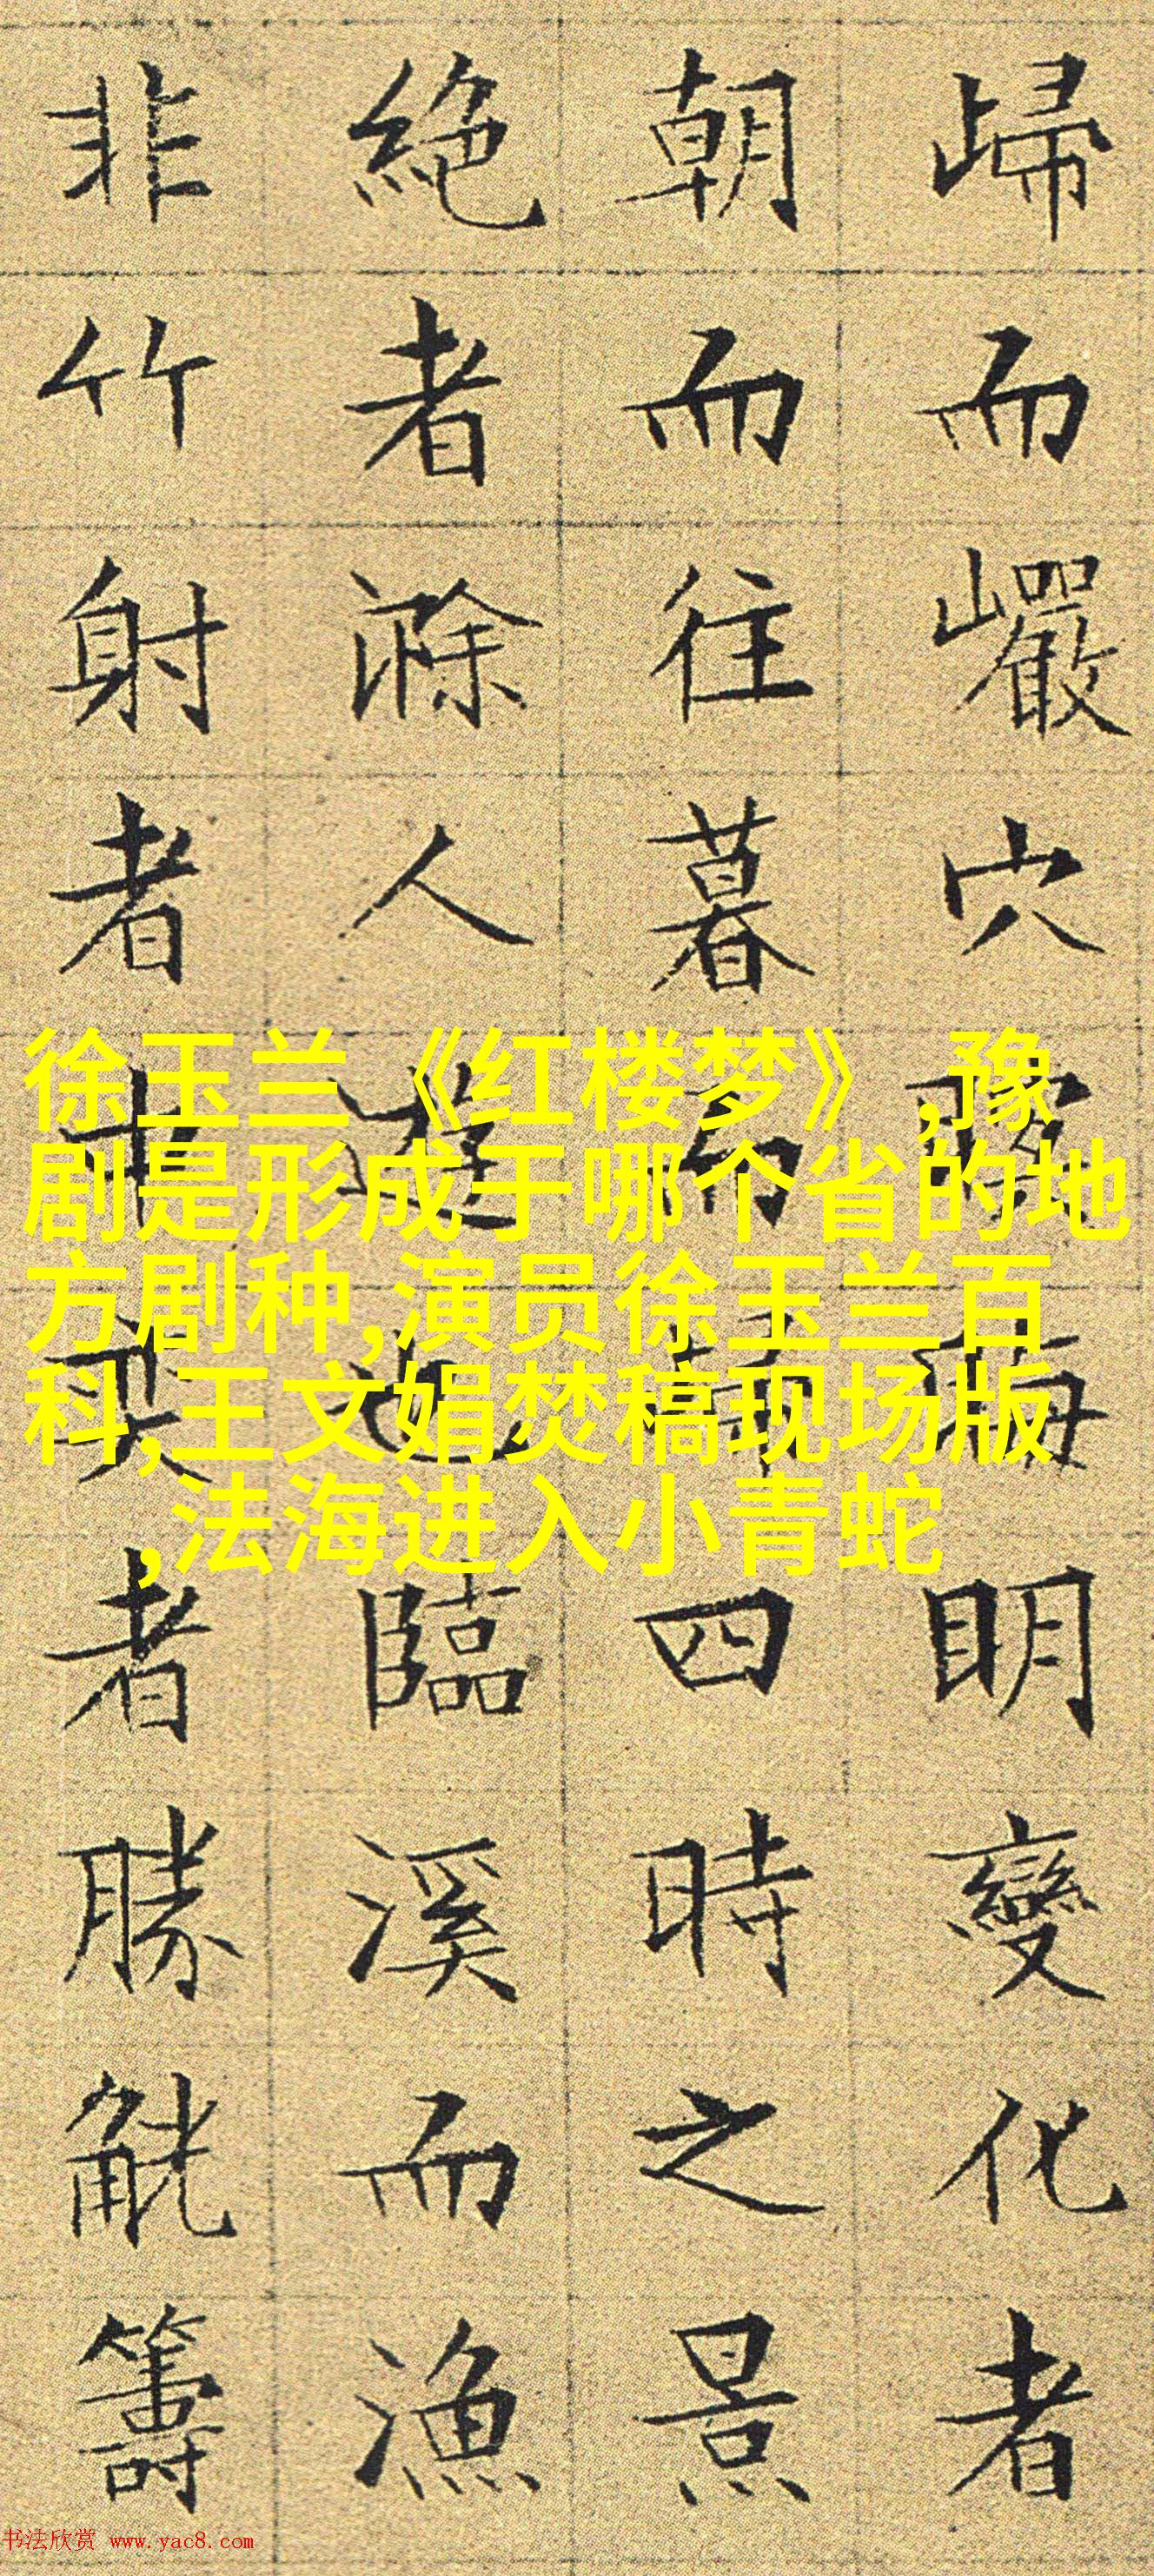 歸而巖穴暝晦明變化者
朝而往暮而四時之景
絶者滁人遊也臨溪而漁
非竹射者中奕者勝觥籌
徐玉兰《红楼梦》,豫
剧是形成于哪个省的地
方剧种,演员徐玉兰百
科,王文娟焚稿现场版
,法海进入小青蛇
书法欣赏 www.yac8.com